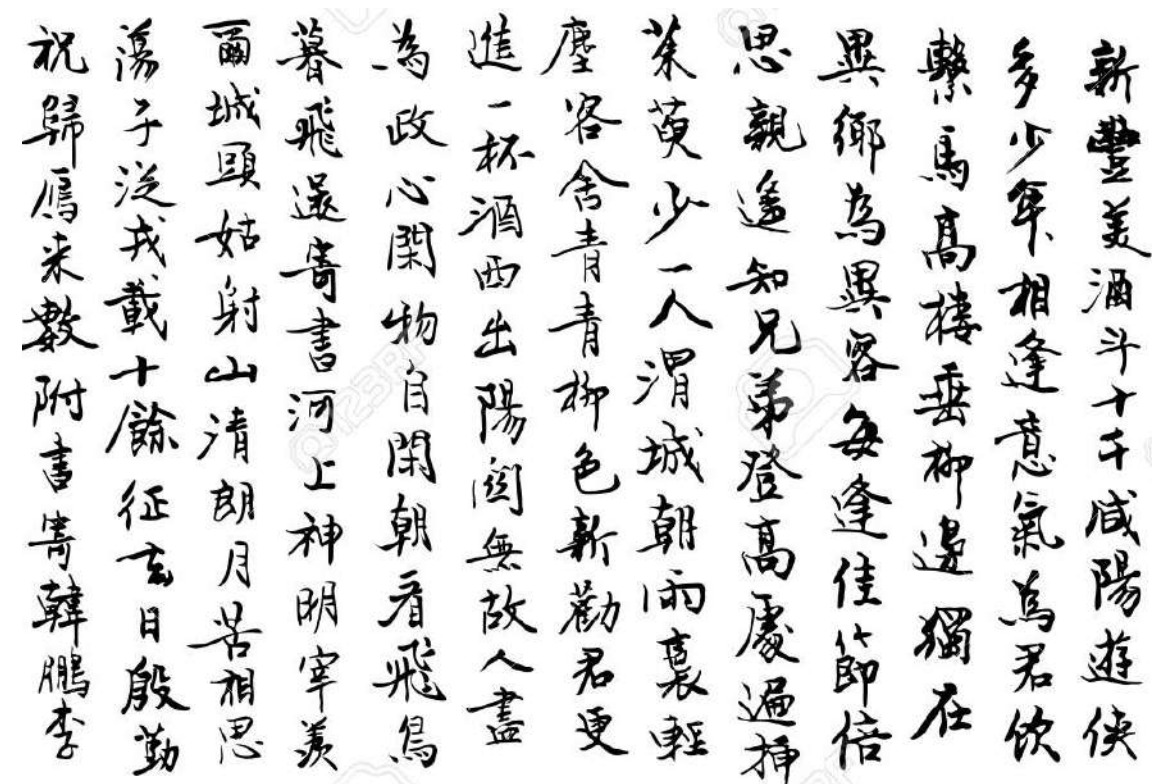 新豐美酒斗十千咸陽遊俠
多少年相逢意氣為君飲
繫馬高樓垂柳邊獨在
異鄉為異客每逢佳節倍
思親遙知兄弟登高處遍插
茱萸少一人渭城朝雨裛輕
塵客舍青青柳色新勸君更
進一杯酒西出陽關無故人盡
為政心閑物自閑朝看飛鳥
暮飛還寄書河上神明宰羨
爾城頭姑射山清朗月苦相思
蕩子從戎載十餘征玄日殷勤
祝歸雁來數附書寄韓鵬李
123RF